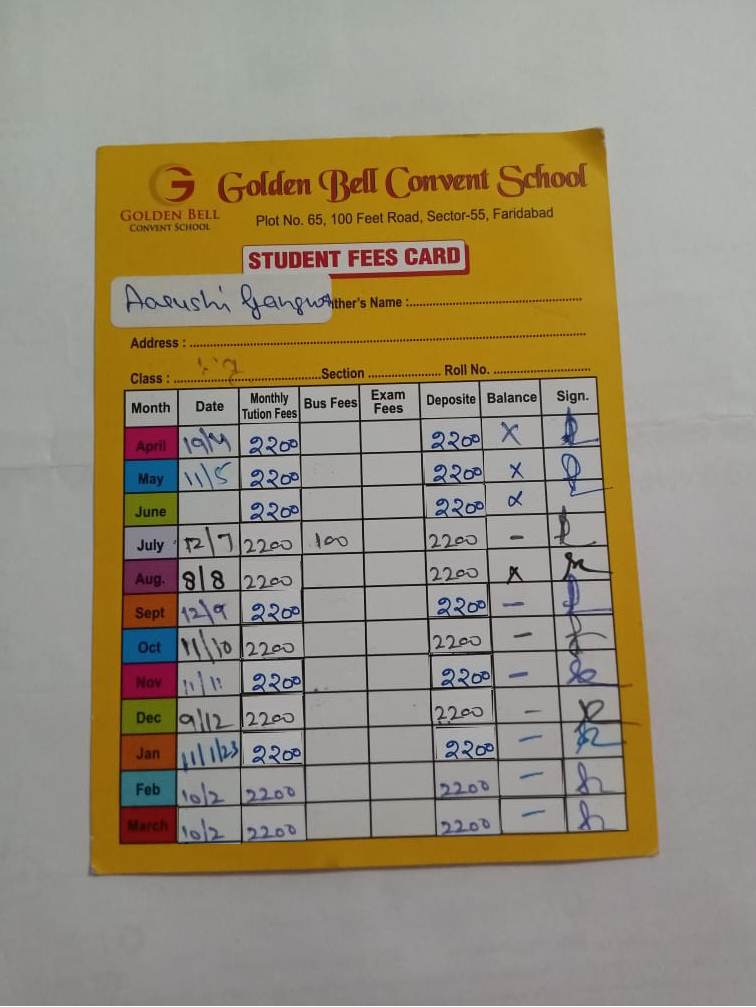 Golden Bell Convent School
GOLDEN BELL
CONVENT SCHOOL
Plot No. 65, 100 Feet Road, Sector-55, Faridabad
STUDENT FEES CARD
Aarushi Gangwa ther's Name :
Address :
Class : Section Roll No.
Month Date Monthly Tution Fees Bus Fees Exam Fees Deposite Balance Sign.
April 19/4 2200 2200 x
May 11/5 2200 2200 x
June 2200 2200 x
July 12/7 2200 100 2200 -
Aug. 8/8 2200 2200 x
Sept 12/9 2200 2200 -
Oct 11/10 2200 2200 -
Nov 11/11 2200 2200 -
Dec 9/12 2200 2200 -
Jan 11/1/23 2200 2200 -
Feb 10/2 2200 2200 -
March 10/2 2200 2200 -